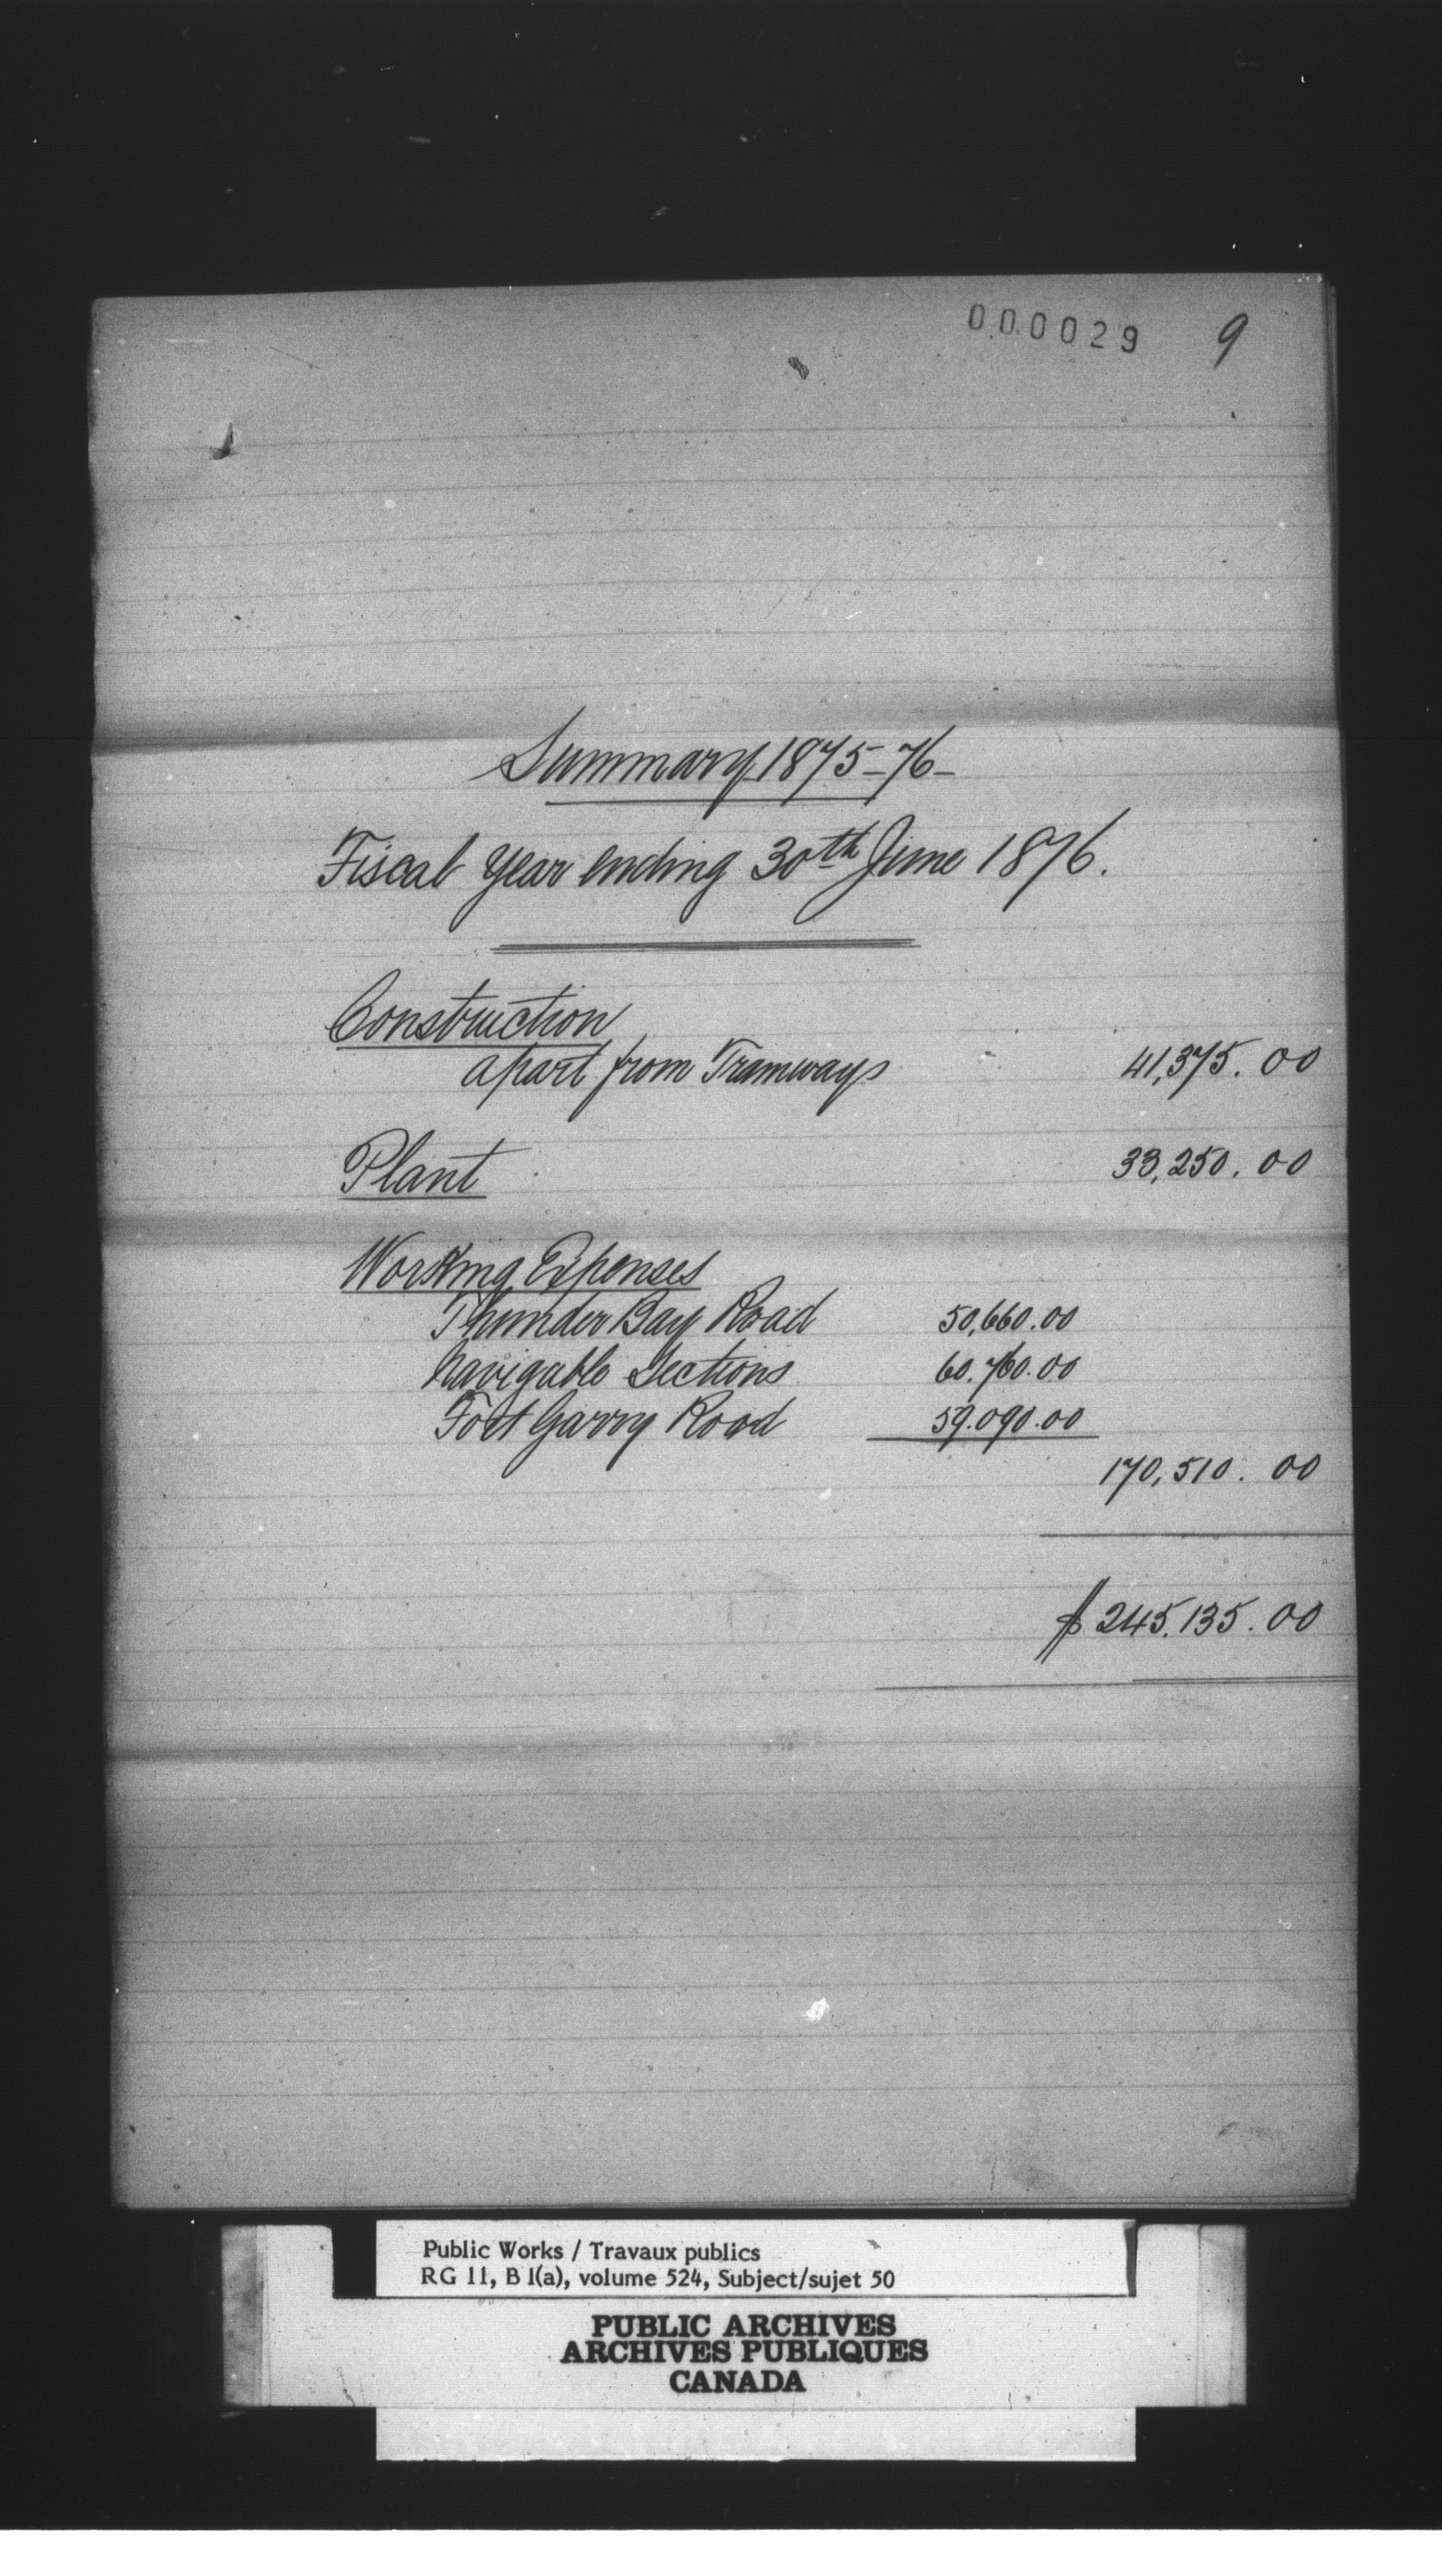 000029 9
Summary 1875-76-
Fiscal Year ending 30th June 1876.
Construction
apart from Tramways 41,375.00
Plant 33,250.00
Working Expenses
Thunder Bay Road 50,660.00
Navigable Sections 60.760.00
Fort Garry Road 59.090.00
170,510.00
$245.135.00
Public Works / Travaux publics
RG 11, B 1(a), volume 524, Subject/sujet 50
PUBLIC ARCHIVES
ARCHIVES PUBLIQUES
CANADA